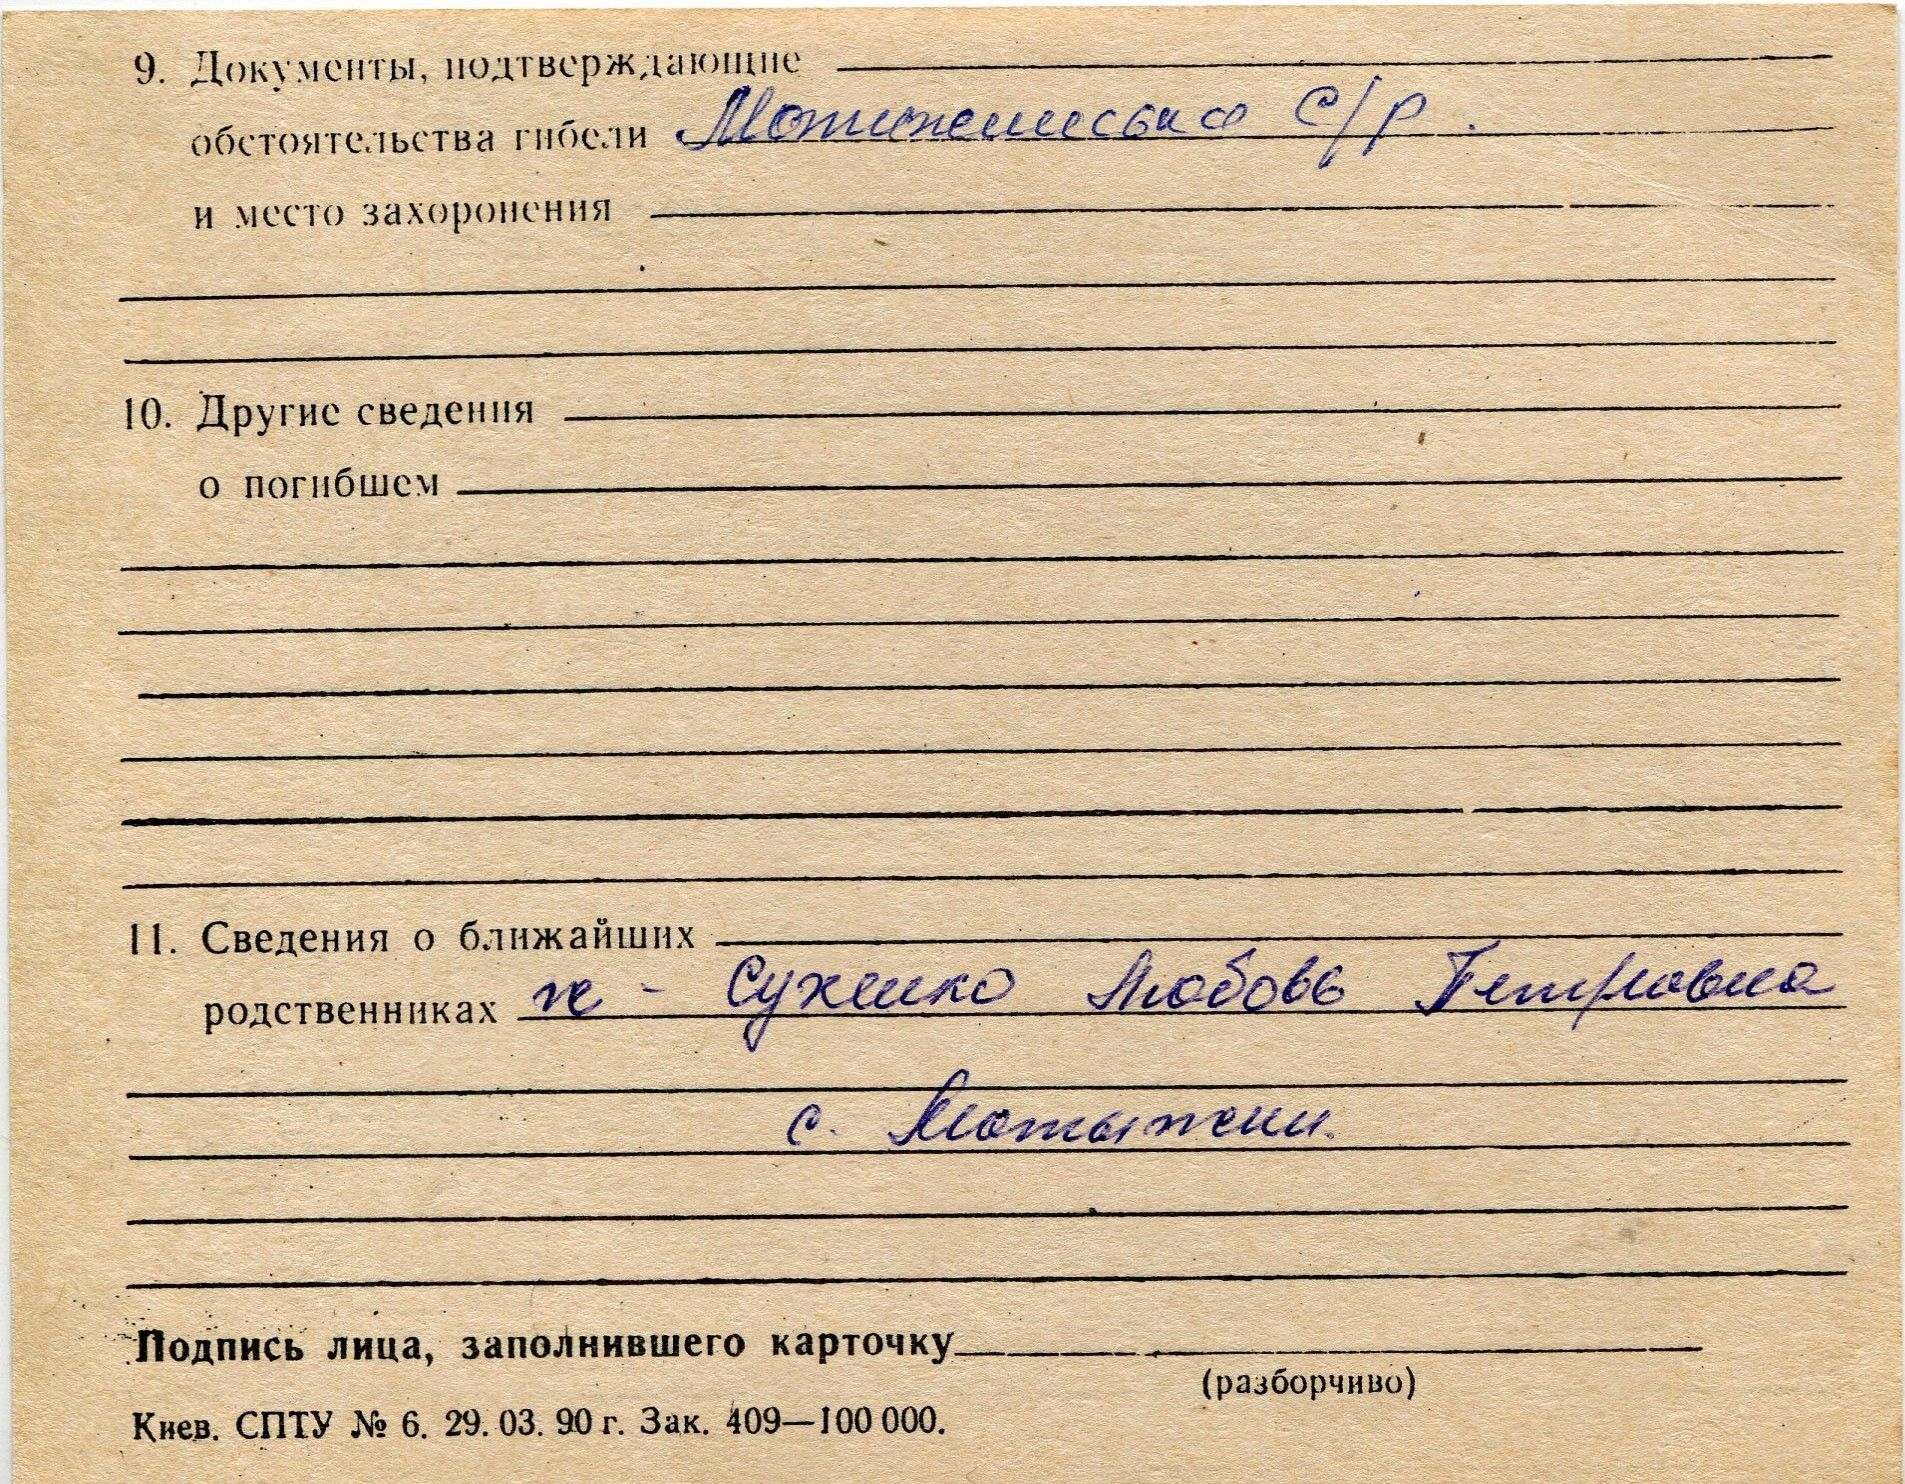 9. Документы, подтверждающие
обстоятельства гибели Мотиженська с/р.
и место захоронения
10. Другие сведения
о погибшем
11. Сведения о ближайших
родственниках ж - Сухенко Любовь Петровна
с. Мотыжин.
Подпись лица, заполнившего карточку
(разборчиво)
Киев. СПТУ № 6. 29. 03. 90 г. Зак. 409—100 000.